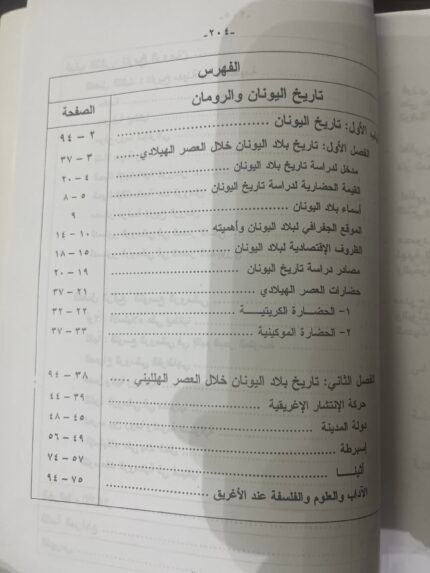 -٢٠٤-
الفهرس
تاريخ اليونان والرومان
الصفحة
الأول: تاريخ اليونان .......... ٢ - ٩٤
الفصل الأول: تاريخ بلاد اليونان خلال العصر الهيلادي...... ٣ - ٣٧
مدخل لدراسة تاريخ بلاد اليونان .......... ٤ - ٢٠
القيمة الحضارية لدراسة تاريخ اليونان .......... ٥ - ٨
أسماء بلاد اليونان .......... ٩
الموقع الجغرافي لبلاد اليونان وأهميته .......... ١٠ - ١٤
الظروف الإقتصادية لبلاد اليونان .......... ١٥ - ١٨
مصادر دراسة تاريخ اليونان .......... ١٩ - ٢٠
حضارات العصر الهيلادي .......... ٢١ - ٣٧
١- الحضـــارة الكريتيـــة .......... ٢٢ - ٣٢
٢- الحضارة الموكينية .......... ٣٣ - ٣٧
الفصل الثاني: تاريخ بلاد اليونان خلال العصر الهلليني ...... ٣٨ - ٩٤
حركة الإنتشار الإغريقية .......... ٣٩ - ٤٤
دولة المدينة .......... ٤٥ - ٤٨
إسبرطة .......... ٤٩ - ٥٦
أثينـــا .......... ٥٧ - ٧٤
الآداب والعلوم والفلسفة عند الأغريق .......... ٧٥ - ٩٤